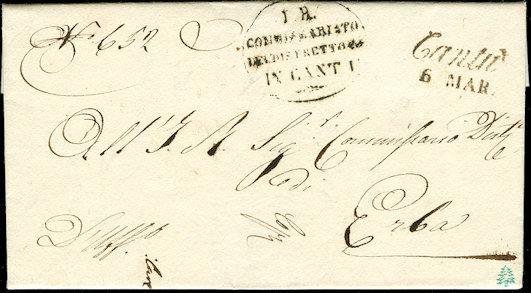 N.º 652
I. R.
COMMISSARIATO
DEL DISTRETTO
IN CANTÙ
Cantù
6 MAR.
All'I. R. Sig.r Commissario Distle
di
Erba
D'uff.o